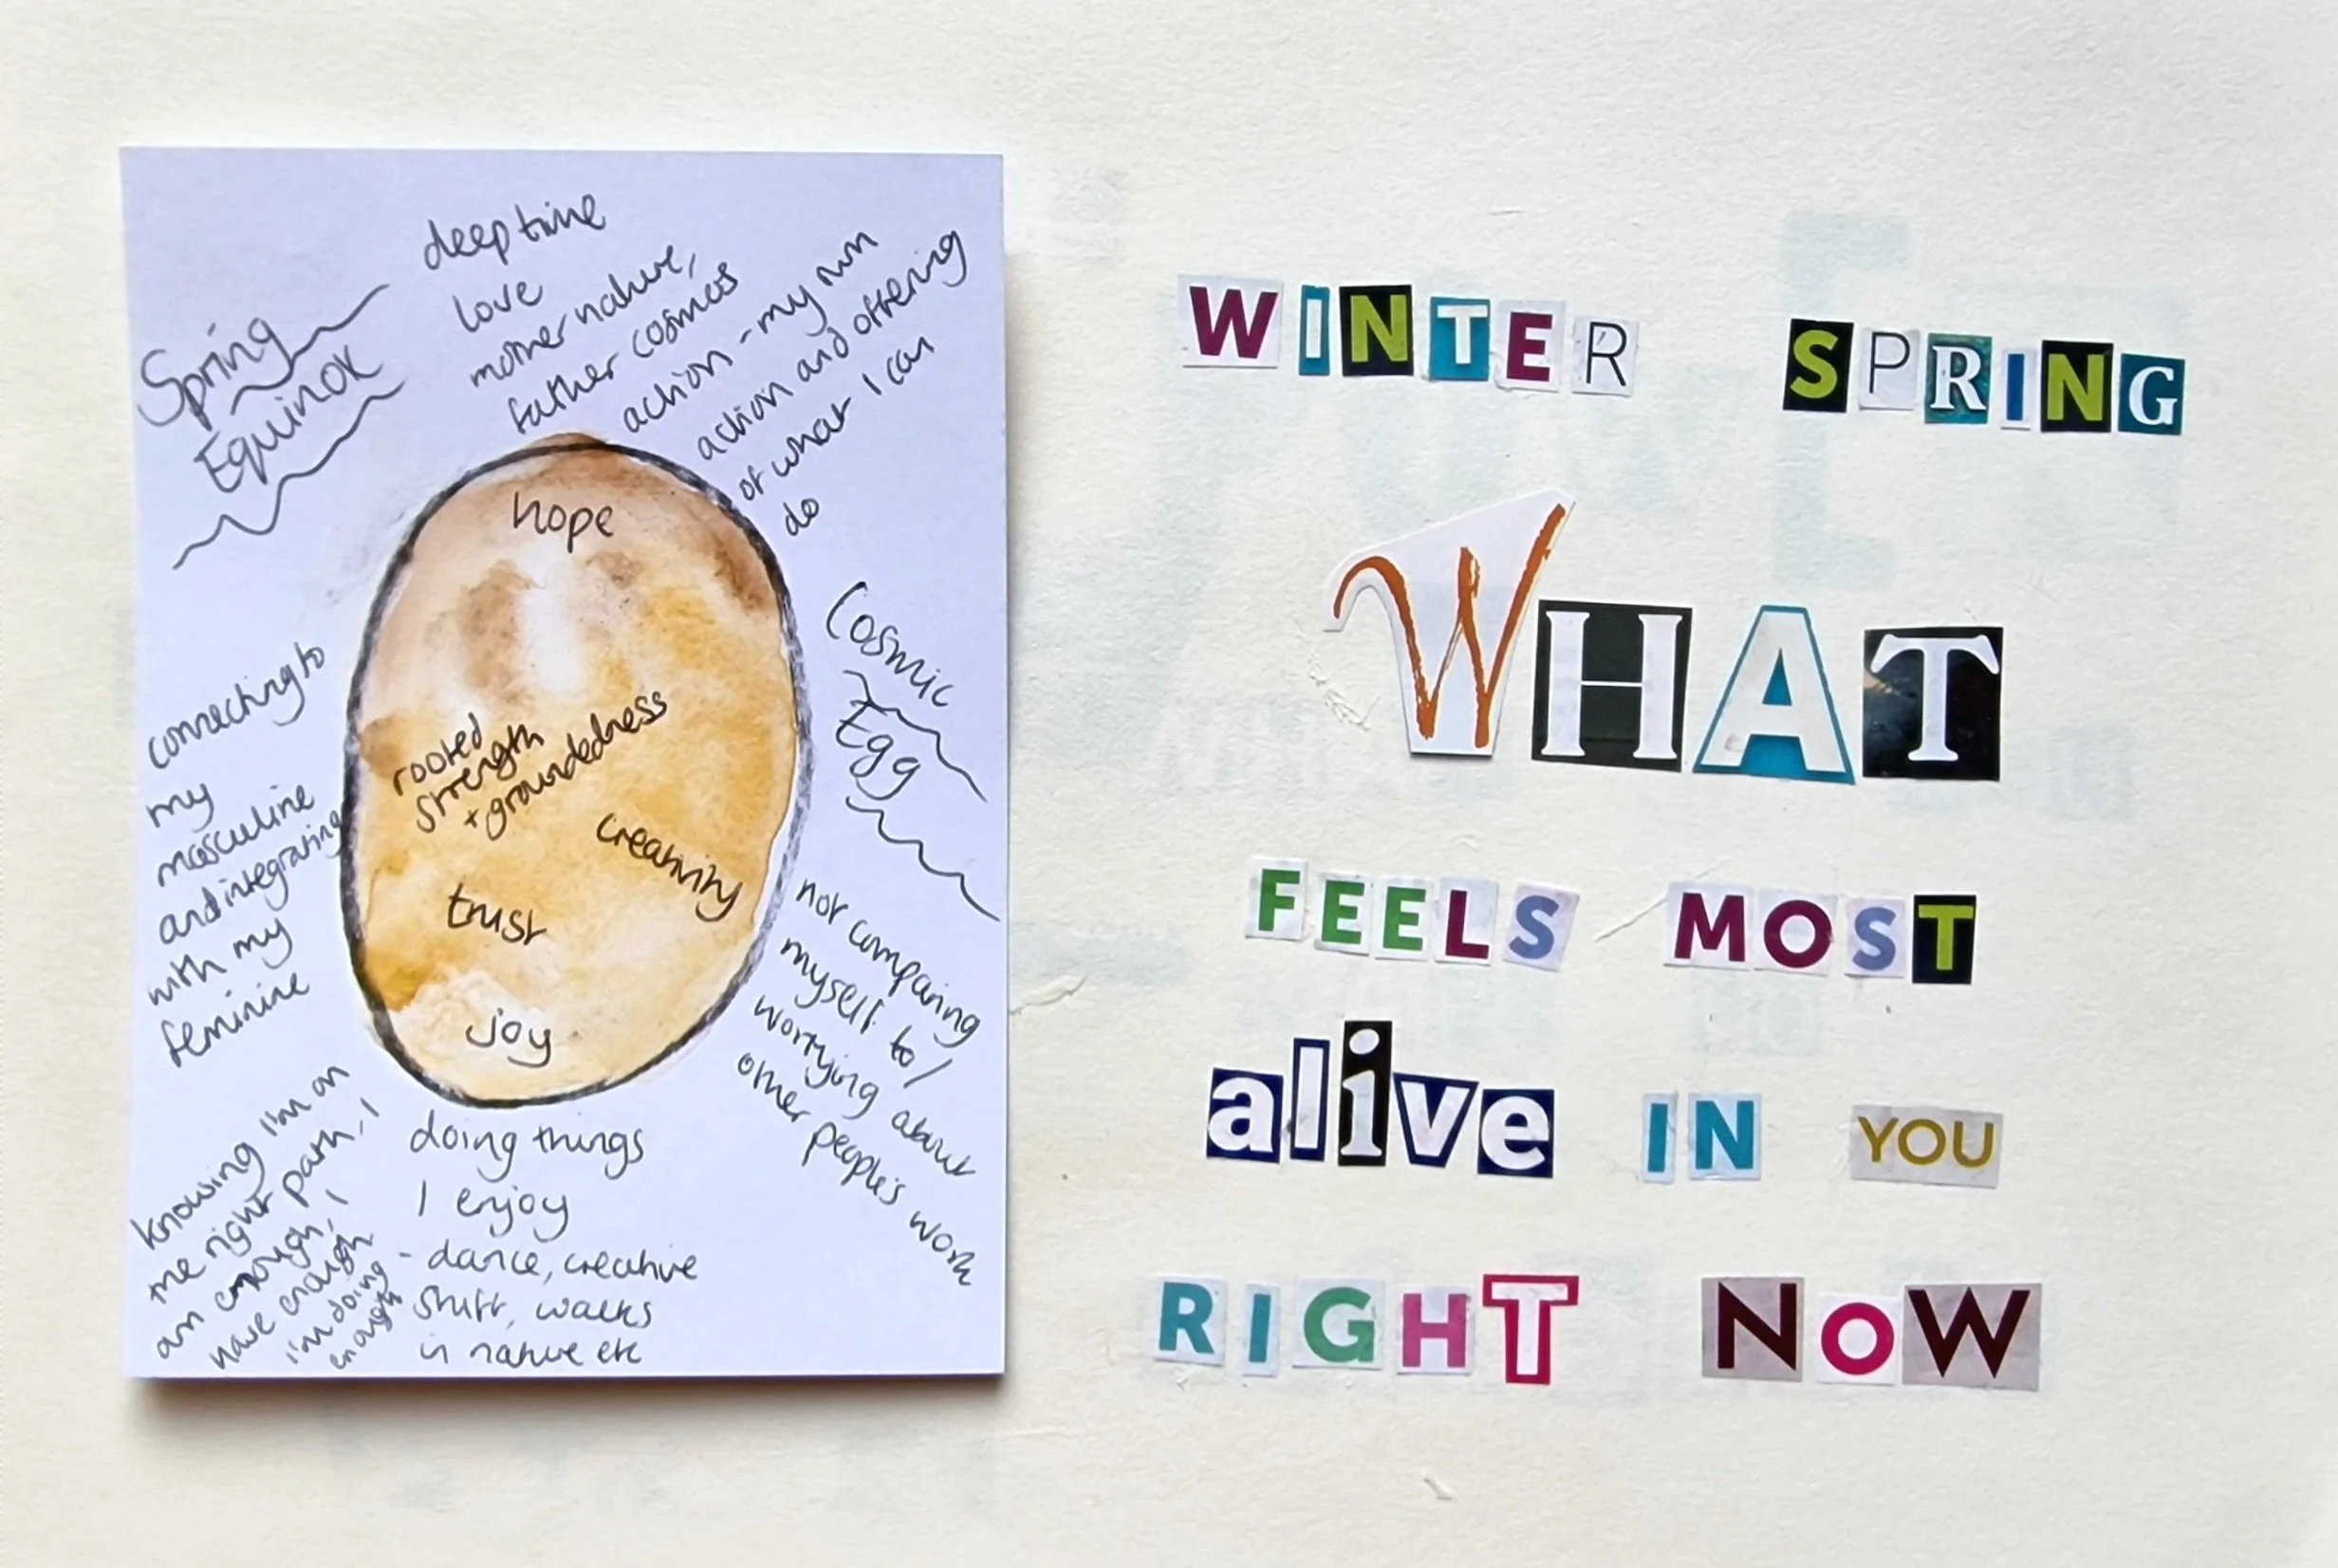 Spring
Equinox
deep time
love
mother nature,
father cosmos
action - my own
action and offering
of what I can
do
hope
rooted
strength
+ groundedness
creativity
trust
joy
Cosmic
Egg
connecting to
my
masculine
and integrating
with my
feminine
not comparing
myself to /
worrying about
other people's work
knowing I'm on
the right path, I
am enough, I
have enough
I'm doing
enough
doing things
I enjoy
- dance, creative
stuff, walks
in nature etc
WINTER SPRING
WHAT
FEELS MOST
alive IN YOU
RIGHT NOW